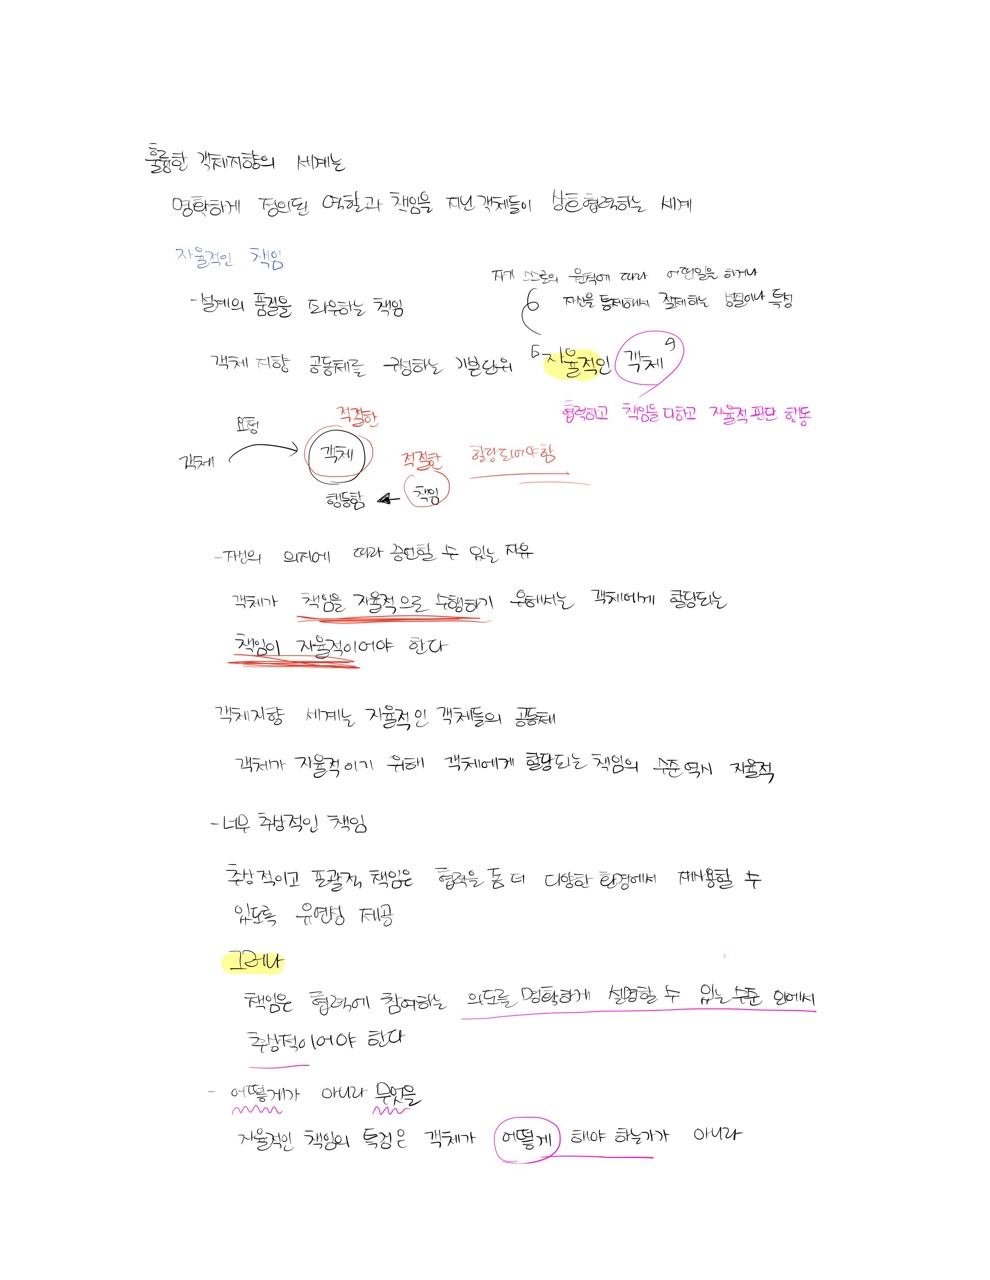 훌륭한 객체지향의 세계는
명확하게 정의된 역할과 책임을 지닌 객체들이 상호협력하는 세계
자율적인 책임
- 설계의 품질을 좌우하는 책임
자기 스스로의 원칙에 따라 어떤일을 하거나
자신을 통제해서 절제하는 성질이나 특성
객체 지향 공동체를 구성하는 기본단위 "자율적인 객체"
협력하고 책임을 다하고 자율적 판단 행동
적절한
요청
객체
객체
적절한 할당되어야함
행동함 ← 책임
- 자신의 의지에 따라 증언할 수 있는 자유
객체가 책임을 자율적으로 수행하기 위해서는 객체에게 할당되는
책임이 자율적이어야 한다
객체지향 세계는 자율적인 객체들의 공동체
객체가 자율적이기 위해 객체에게 할당되는 책임의 수준역시 자율적
- 너무 추상적인 책임
추상적이고 포괄적 책임은 협력을 좀 더 다양한 환경에서 재사용할 수
있도록 유연성 제공
그러나
책임은 협력에 참여하는 의도를 명확하게 설명할 수 있는 수준 안에서
추상적이어야 한다
- 어떻게가 아니라 무엇을
자율적인 책임의 특징은 객체가 어떻게 해야 하는가가 아니라